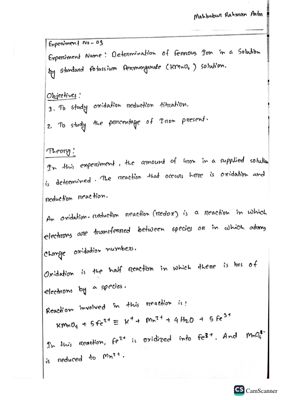 Mahbubur Rahaman
Experiment No - 03
Experiment Name: Determination of Ferrous Iron in a Solution
by standard Potassium Permanganate (KMnO4) solution.
Objectives:
1. To study oxidation reduction titration.
2. To study the percentage of Iron present.
Theory:
In this experiment, the amount of iron in a supplied solution
is determined. The reaction that occurs here is oxidation and
reduction reaction.
An oxidation-reduction reaction (redox) is a reaction in which
electrons are transferred between species or in which atoms
change oxidation numbers.
Oxidation is the half reaction in which there is loss of
electrons by a species.
Reaction involved in this reaction is:
KMnO4 + 5Fe2+ ≡ K+ + Mn2+ + 4H2O + 5Fe3+
In this reaction, Fe2+ is oxidized into Fe3+. And
is reduced to Mn2+.
CS CamScanner